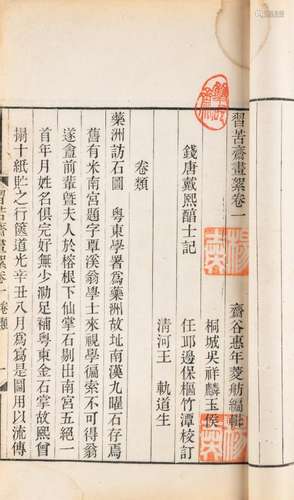 習苦齋畫絮卷一
錢唐戴熙醇士記
齋谷惠年菱舫編輯
桐城吳祥麟玉侯
任邱邊保樞竹潭校訂
清河王　軌道生
卷類
藥洲訪石圖　粵東學署爲藥洲故址南漢九曜石存焉
舊有米南宮題字覃溪翁學士來視學徧索不可得翁
遂龕前輩曁夫人於榕根下仙掌石剔出南宮五絕一
首年月姓名俱完好無少泐足補粵東金石掌故熙曾
搨十紙貯之行篋道光辛丑八月爲寫是圖用以流傳
習苦齋畫絮卷一　卷類　一